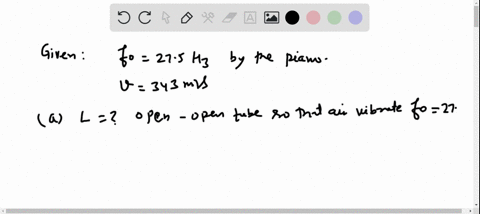 Given: fo = 27.5 Hz by the piano.
v = 343 m/s
(a) L = ? open-open tube so that air vibrate fo = 27.